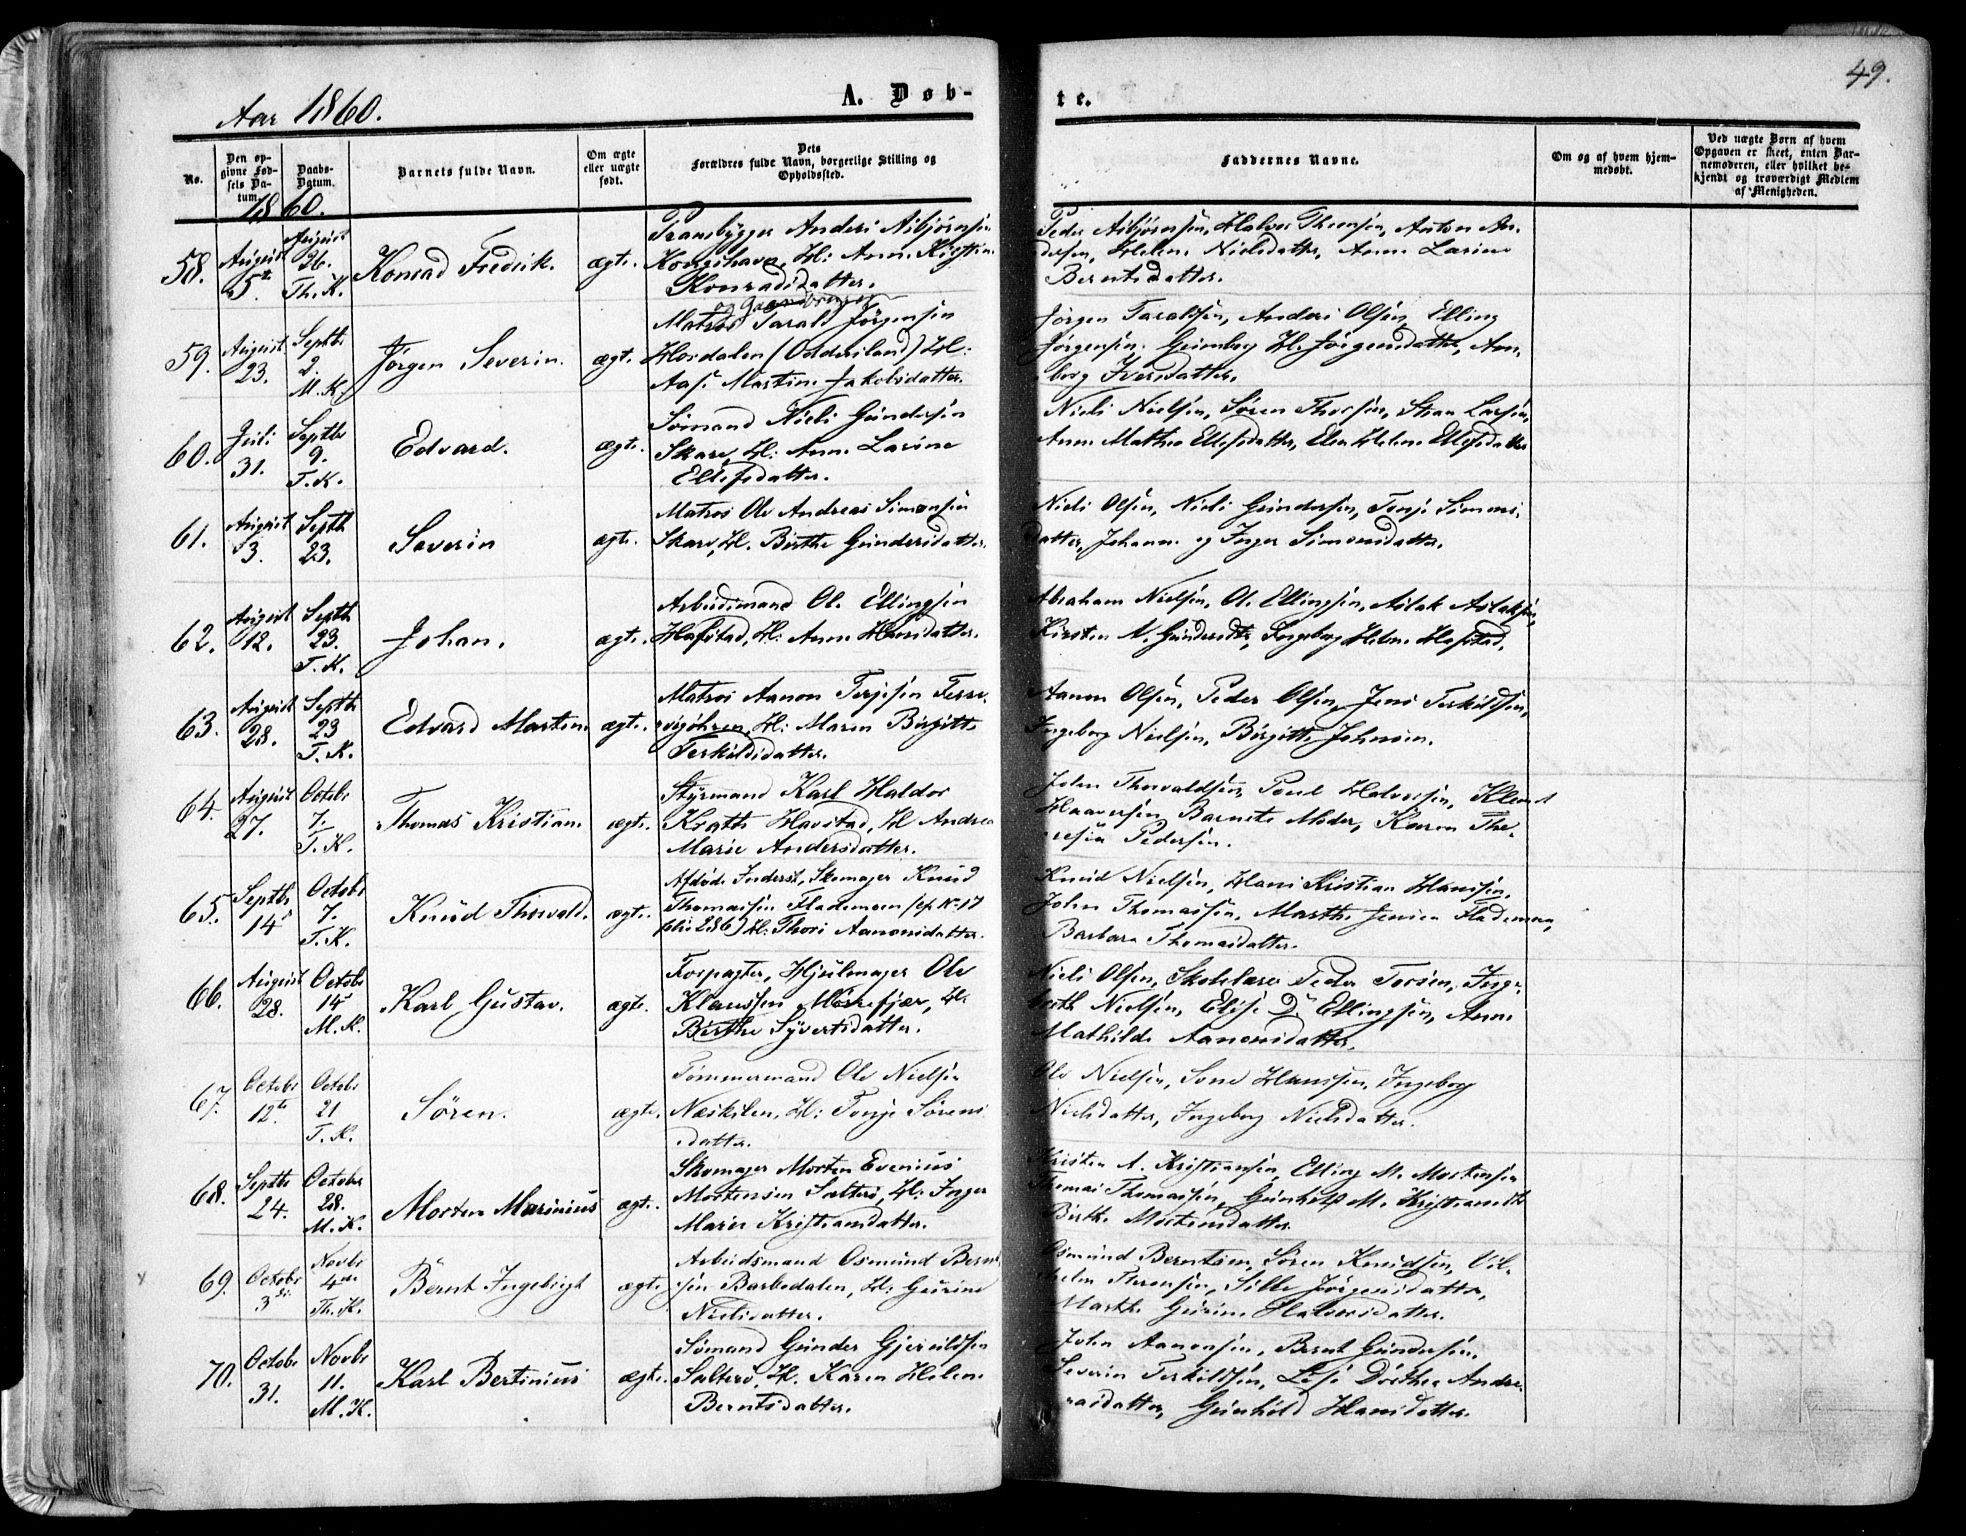 49.
Aar 1860.
A. Døb-
te.
No.
Den opgivne Fødsels Datum.
Daabs-Datum.
Barnets fulde Navn.
Om ægte eller uægte født.
Dets Forældres fulde Navn, borgerlige Stilling og Opholdssted.
Faddernes Navne.
Om og af hvem hjemmedøbt.
Ved uægte Born af hvem Opgaven er skeet, enten Barnemoderen, eller hvilket bekjendt og troværdigt Medlem af Menigheden.
1860.
58. August 5te August 26. Th. K. Konrad Fredrik. ægte.
Prambygger Anders Asbjørnsen
Kongshavn, H: Anne Kirstine
Konradsdatter.
Peder Asbjørnsen, Halvor Thorsen, Anton An-
dersen, Helene Nielsdatter, Anne Larine
Berntsdatter.
59. August 23. Septbr 2. M. K. Jørgen Severin. ægte.
Matros Tarald Jørgensen
Hovdalen (Oddersland) H:
Aase Martine Jakobsdatter.
Jørgen Taraldsen, Anders Olsen, Elling
Jørgensen. Gunborg H. Jørgensdatter, An-
borg Iversdatter.
60. Juli 31. Septbr 9. T. K. Edvard. ægte.
Sømand Niels Gundersen
Skare, H: Anne Larine
Ellefsdatter.
Niels Nielsen, Søren Thorsen, Stian Larsen,
Anne Mathea Ellefsdatter, Elen Helene Ellefsdatter
61. August 3. Septbr 23. Severin ægte.
Matros Ole Andreas Simonsen
Skare, H. Birthe Gundersdatter.
Niels Olsen, Niels Gundersen, Tonje Simons-
datter, Johanne og Inger Simonsdatter.
62. August 12. Septbr 23. T. K. Johan. ægte.
Arbeidsmand Ole Ellingsen
Hafstad, H: Anne Hansdatter.
Abraham Nielsen, Ole Ellingsen, Aslak Aslaksen,
Kirsten N. Gundersdtr, Ingeborg Helene Hafstad.
63. August 28. Septbr 23 T. K. Edvard Martin. ægte.
Matros Aanon Terjesen Terre-
vigøhren, H: Maren Birgitte
Terkildsdatter.
Aanon Olsen, Peder Olsen, Jens Terkildsen,
Ingeborg Nielsen, Birgitte Johnsen.
64. August 27. Octobr 7. T. K. Thomas Kristian. ægte.
Styrmand Karl Haldor
Kratte Havstad, H. Andrea
Marie Andersdatter.
John Thorvaldsen, Poul Halvorsen, Klemet
Haaversen, Barnets Moder, Karen The-
resia Pedersen.
65. Septbr 14. Octobr 7. T. K. Knud Thorvald. ægte.
Afdøde Inderst, Skomager Knud
Thomassen Flademoen (cfr No 17
folio 286) H: Thore Aanonsdatter.
Knud Nielsen, Hans Kristian Hansen,
John Thomassen, Marthe Jensen Flademoen,
Barbara Thomasdatter.
66. August 28. Octobr 14 M. K. Karl Gustav. ægte.
Forpagter, Hjulmager Ole
Klaussen Mørrefjær, H.
Birthe Syvertsdatter.
Niels Olsen, Skolelærer Peder Torsen, Inge-
beth Nielsen, Elise D. Ellingsen, Anne
Mathilde Aanonsdatter.
67. Octobr 12te Octobr 21 T. K. Søren. ægte.
Tømmermand Ole Nielsen
Næskilen, H: Tonje Sørens-
datter.
Ole Nielsen, Sone Hanssen, Ingeborg
Nielsdatter, Ingeborg Nielsdatter.
68. Septbr 24. Octobr 28. M. K. Morten Marinius ægte.
Skomager Morten Evenius
Mortensen Salterø, H: Inger
Marie Kristiansdatter.
Kristen A. Kristiansen, Elling M. Mortensen
Thomas Thomassen, Gunhild M. Kristiansdtr
Birthe Mortensdatter.
69. Octobr 3die Novbr 4de Th. K. Bernt Ingebrigt ægte.
Arbeidsmand Osmund Bernt-
sen Barbodalen, H: Gurine
Nielsdatter.
Osmund Berntsen, Søren Knudsen, Vil-
helm Thersen, Sille Jørgensdatter,
Marthe Gurine Halvorsdatter.
70. Octobr 31. Novbr 11. M. K. Karl Bertinius ægte.
Sømand Gunder Gjeruldsen
Salterø, H. Karen Helene
Berntsdatter.
John Aanonsen, Bernt Gundersen,
Severin Terkildsen, Lise Dorthea Andre-
asdatter, Gunhild Hansdatter.